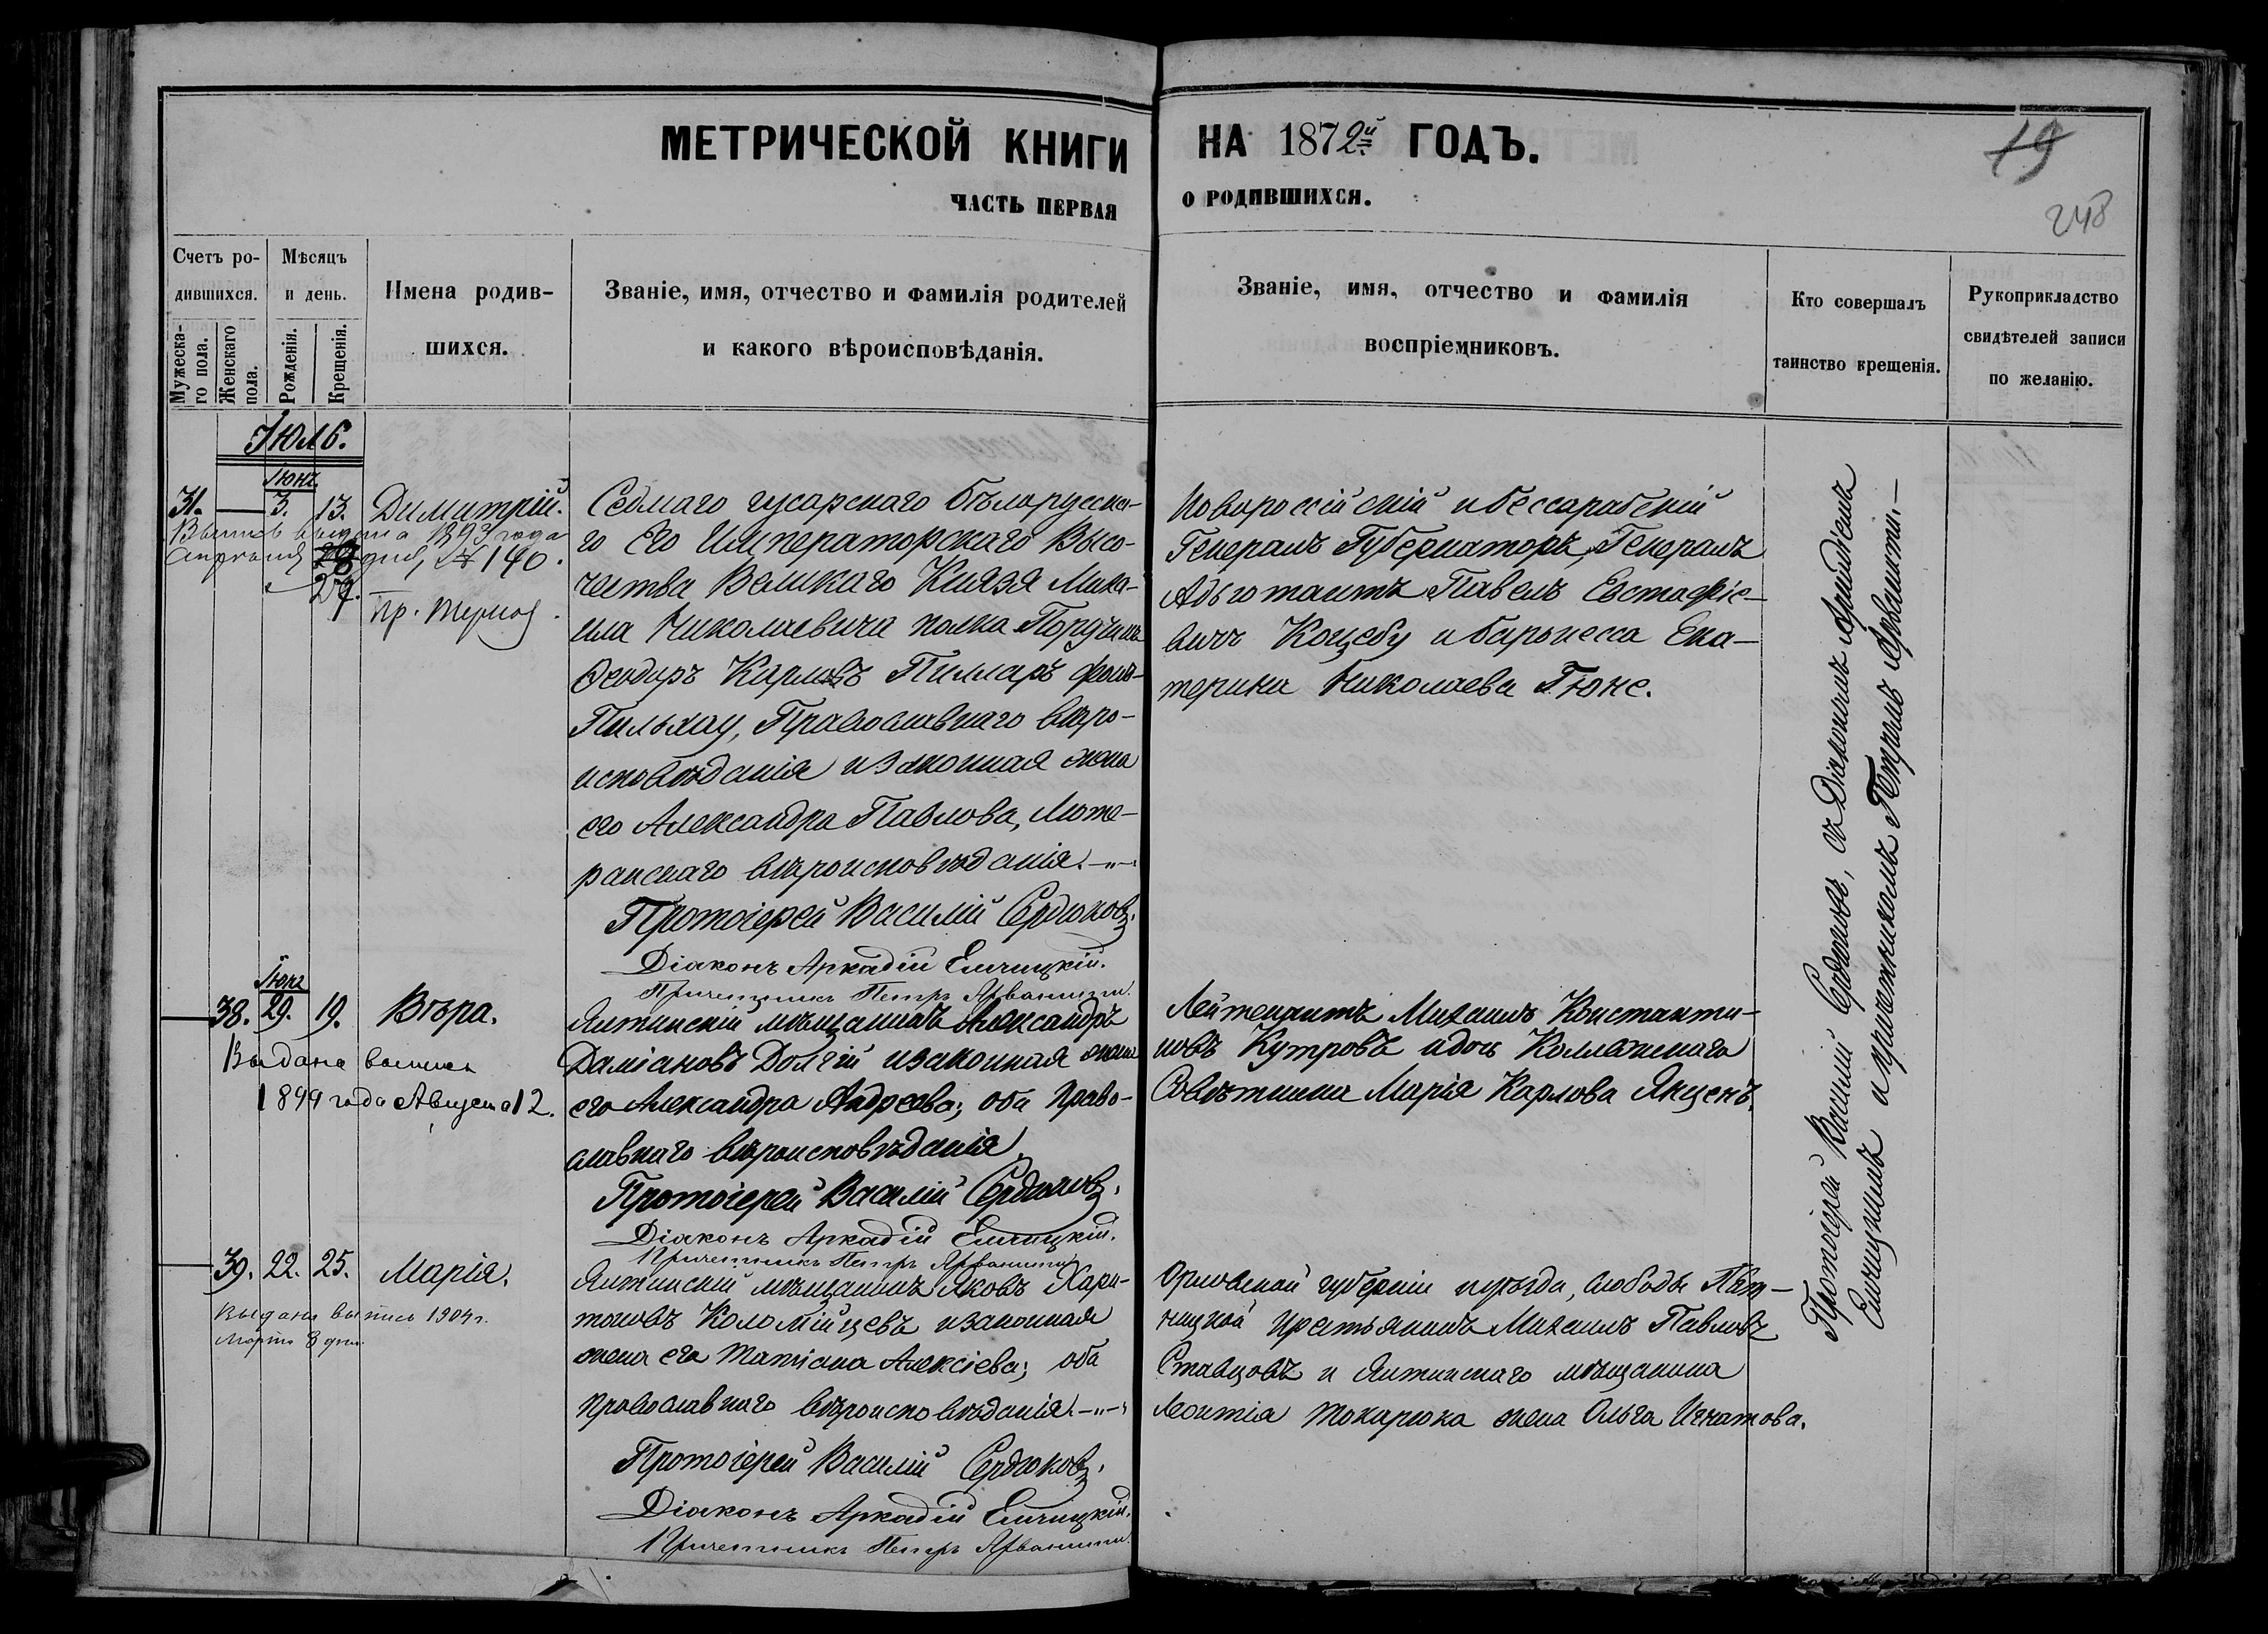 МЕТРИЧЕСКОЙ КНИГИ НА 1872й ГОДЪ.
ЧАСТЬ ПЕРВАЯ О РОДИВШИХСЯ.
19
248
Счетъ ро-
дившихся.
Мужеска-
го пола.
Женскаго
пола.
Мѣсяцъ
и день.
Рожденія.
Крещенія.
Имена родив-
шихся.
Званіе, имя, отчество и фамилія родителей
и какого вѣроисповѣданія.
Званіе, имя, отчество и фамилія
воспріемниковъ.
Кто совершалъ
таинство крещенія.
Рукоприкладство
свидѣтелей записи
по желанію.
Іюль.
Іюнь.
31. 3. 13. Димитрій.
1893 года
№ 140.
27.
Седмаго гусарскаго бѣлорусска-
го Его Императорскаго Высо-
чества Великаго Князя Миха-
ила Николаевича полка Поручикъ
Ѳеодоръ Карловъ Пилларъ фонъ-
Пильхау, Православнаго вѣро-
исповѣданія и законная жена
его Александра Павлова, Люте-
ранскаго вѣроисповѣданія.
Протоіерей Василій Сердюковъ.
Діаконъ Аркадій Елчицкій.
Причетникъ Петръ Арванити.
Новороссійскій и бессарабскій
Генералъ Губернаторъ, Генералъ
Адъютантъ Павелъ Евстафіе-
вичъ Коцебу и баронесса Ека-
терина Николаева Гюне.
Іюнь
38. 29. 19. Вѣра.
Выдана выпись
1899 года Августа 12.
Ялтинскій мѣщанинъ Александръ
Даміановъ Долгій и законная жена
его Александра Андреева; оба Право-
славнаго вѣроисповѣданія
Протоіерей Василій Сердюковъ.
Діаконъ Аркадій Елчицкій.
Причетникъ Петръ Арванити
Лейтенантъ Михаилъ Константи-
новъ Кутровъ и дочь Коллежскаго
Совѣтника Марія Карлова Янценъ.
39. 22. 25. Марія.
Выдана выпись 1904 г.
Марта 8 дня
Ялтинскій мѣщанинъ Яковъ Хари-
тоновъ Коломійцевъ и законная
жена его Татіана Алексіева; оба
православнаго вѣроисповѣданія.
Протоіерей Василій Сердюковъ.
Діаконъ Аркадій Елчицкій.
Причетникъ Петръ Арванити.
Орловской губерніи и уѣзда, слободы Пят-
ницкой крестьянинъ Михаилъ Павловъ
Ставцовъ и Ялтинскаго мѣщанина
Леонтія Токарюка жена Ольга Игнатова.
Протоіерей Василій Сердюковъ, съ Діакономъ Аркадіемъ
Елчицкимъ и причетникомъ Петромъ Арванити.